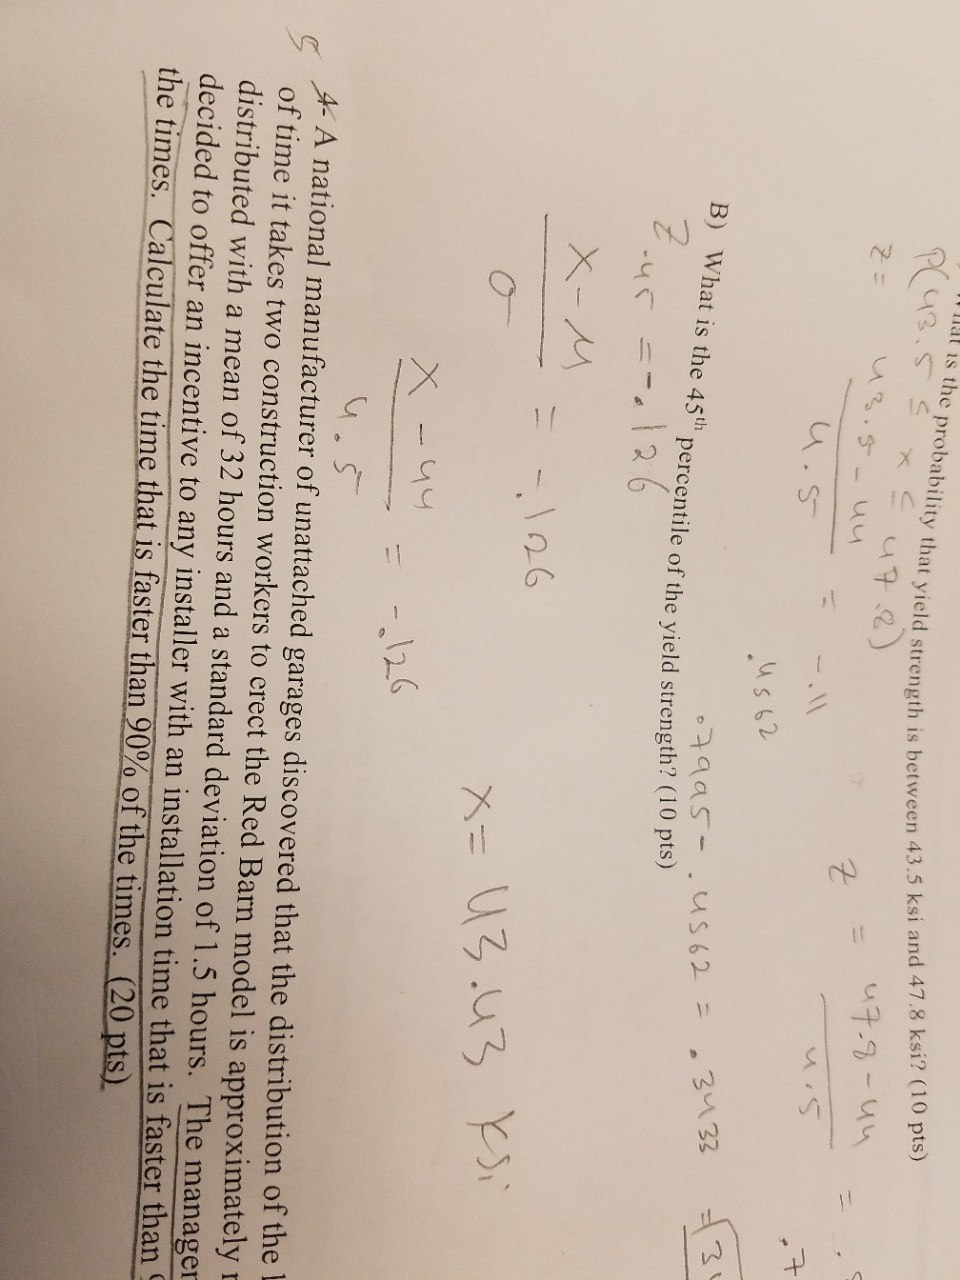 What is the probability that yield strength is between 43.5 ksi and 47.8 ksi? (10 pts)
P(43.5 ≤ x ≤ 47.8)
z = 43.5 - 44 / 4.5 = -.11
z = 47.8 - 44 / 4.5 = .
.7
.4562
.7995 - .4562 = .3433 = 34
B) What is the 45th percentile of the yield strength? (10 pts)
Z.45 = -.126
X - μ / σ = -.126
x = 43.43 ksi
X - 44 / 4.5 = -.126
5
4- A national manufacturer of unattached garages discovered that the distribution of the
of time it takes two construction workers to erect the Red Barn model is approximately
distributed with a mean of 32 hours and a standard deviation of 1.5 hours. The manager
decided to offer an incentive to any installer with an installation time that is faster than
the times. Calculate the time that is faster than 90% of the times. (20 pts)